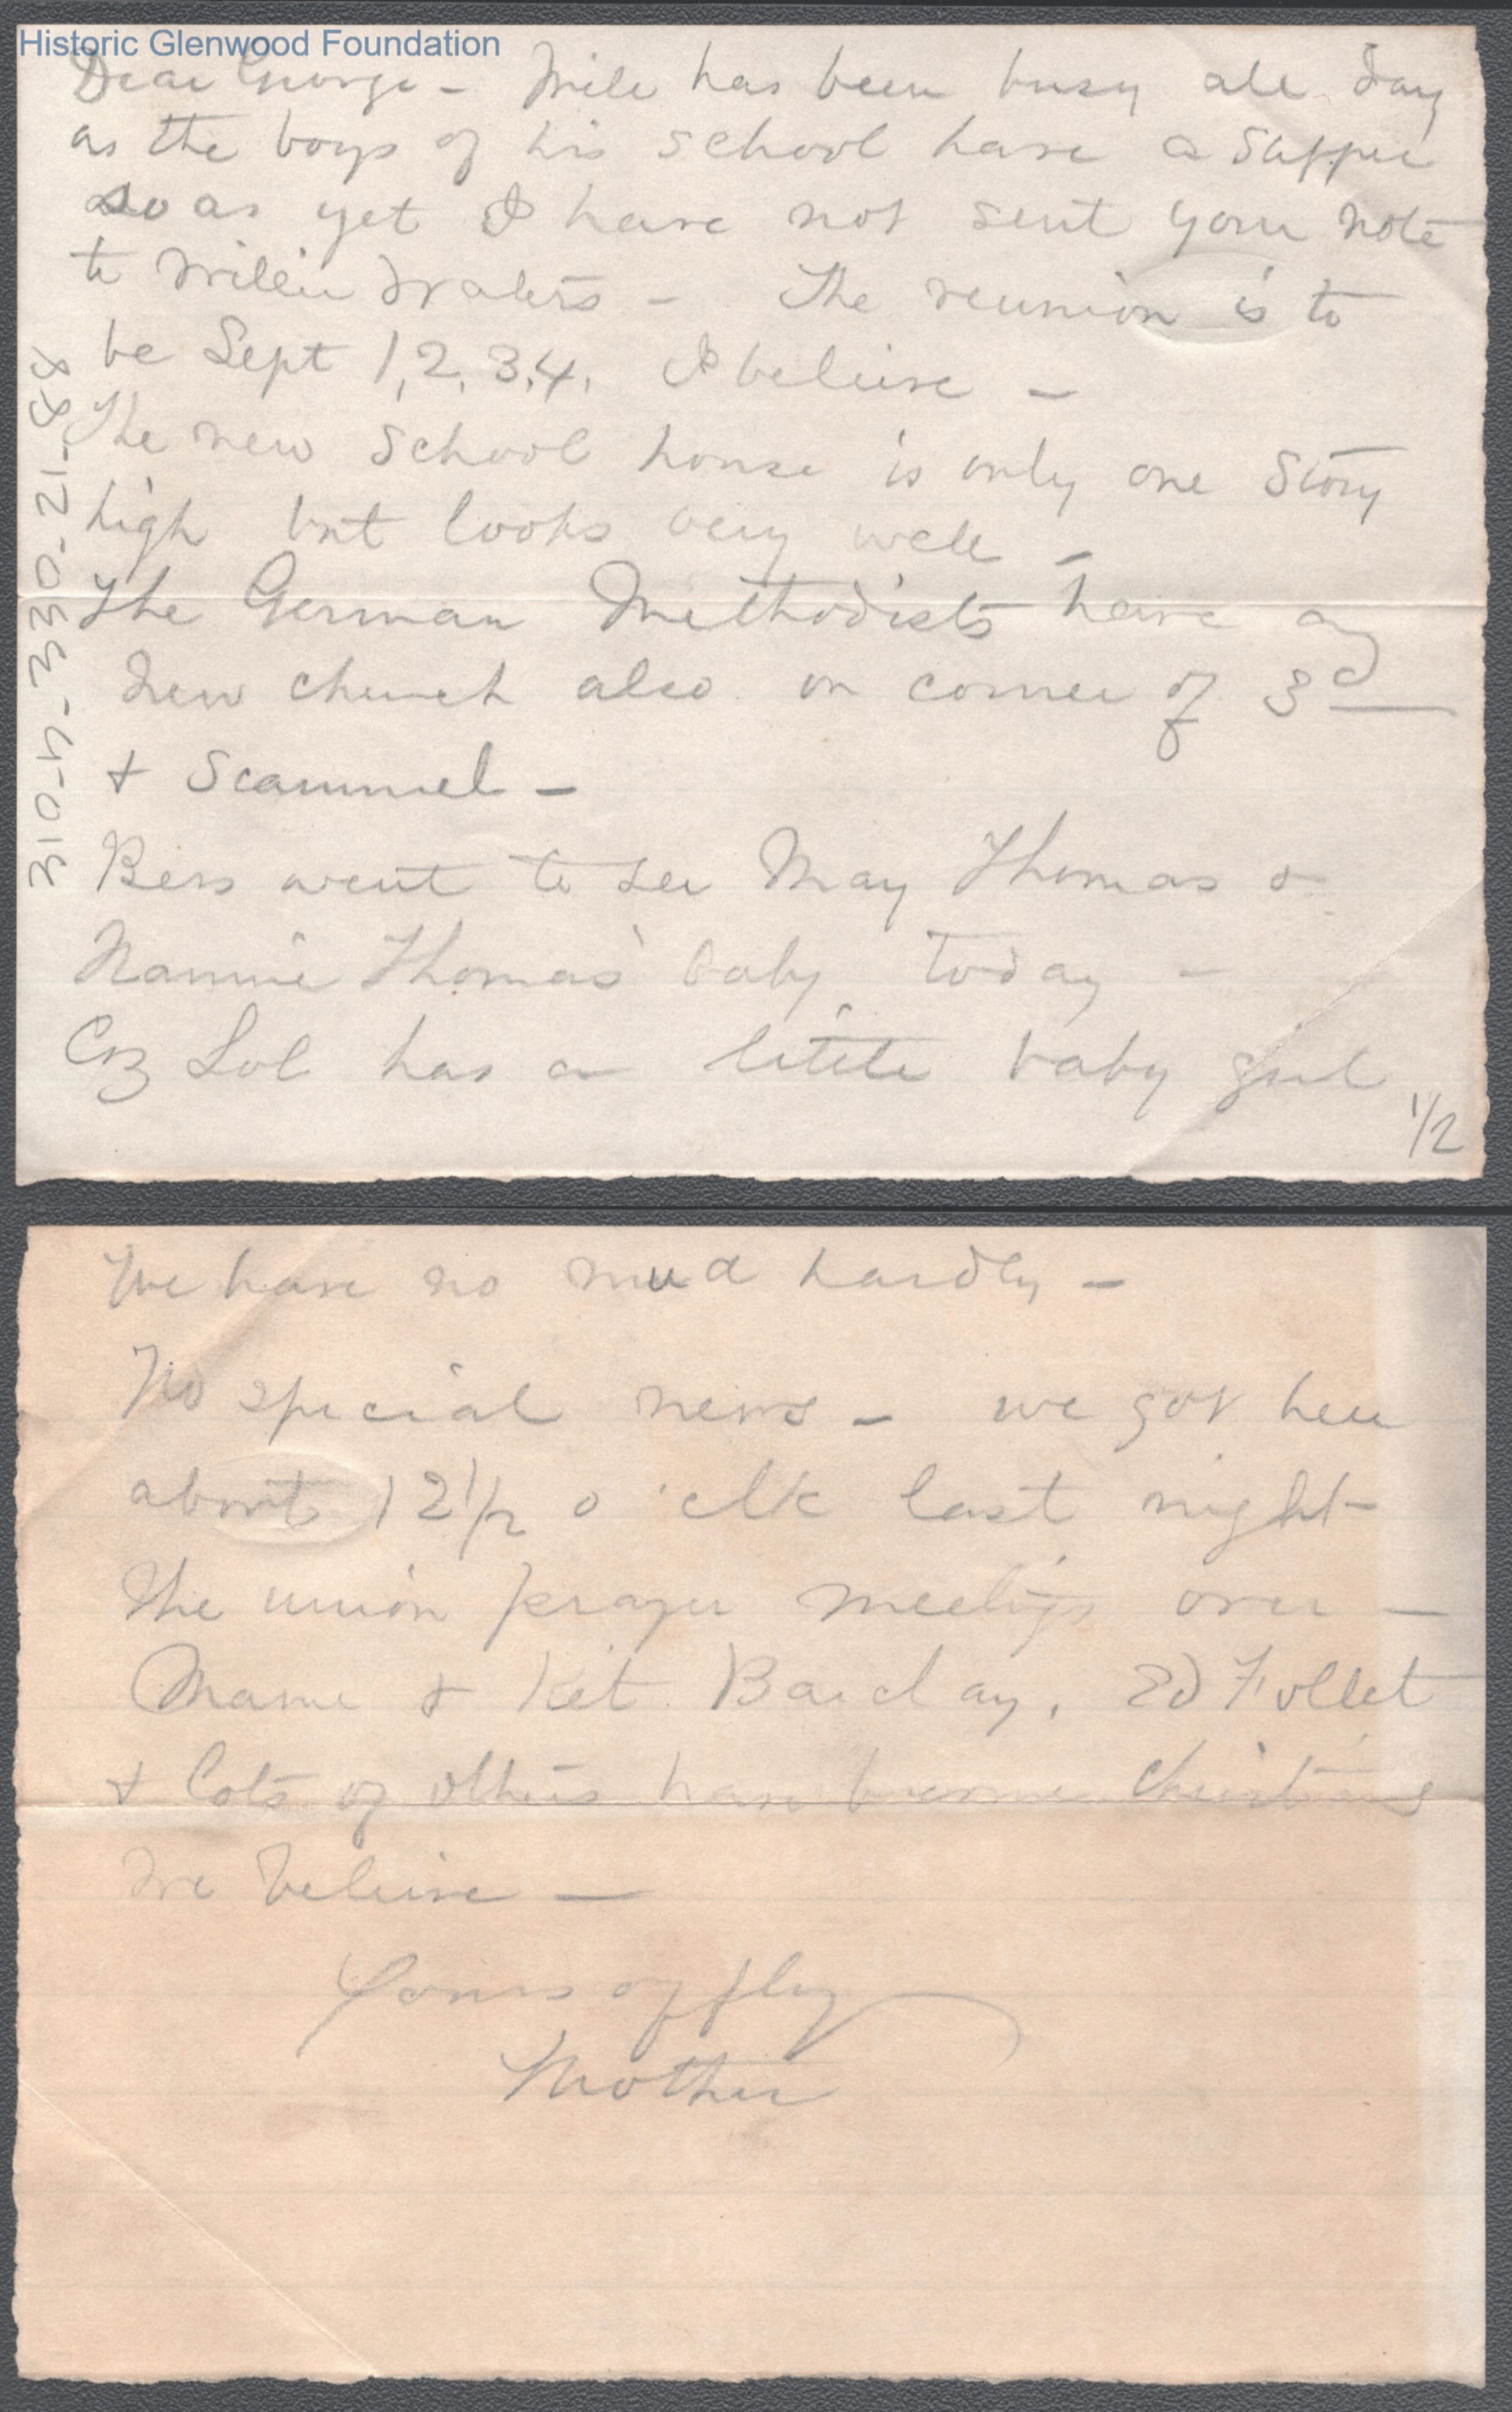 Historic Glenwood Foundation
Dear George - Will has been busy all day
as the boys of his school have a supper
so as yet I have not sent your note
to Willie Waters - The reunion is to
be Sept 1, 2, 3, 4, I believe -
The new school house is only one story
high but looks very well -
The German Methodists have a
new church also on corner of 3d
& Scammel -
Bess went to see May Thomas &
Nannie Thomas' baby today -
Coz Lol has a little baby girl
1/2
310-4-330.21-88
We have no mud hardly -
No special news - we got here
about 12 1/2 o'clk last night
The union prayer meetings over -
Mame & Kit Barclay, Ed Follet
& lots of others have become Christians
we believe -
Yours affly
Mother